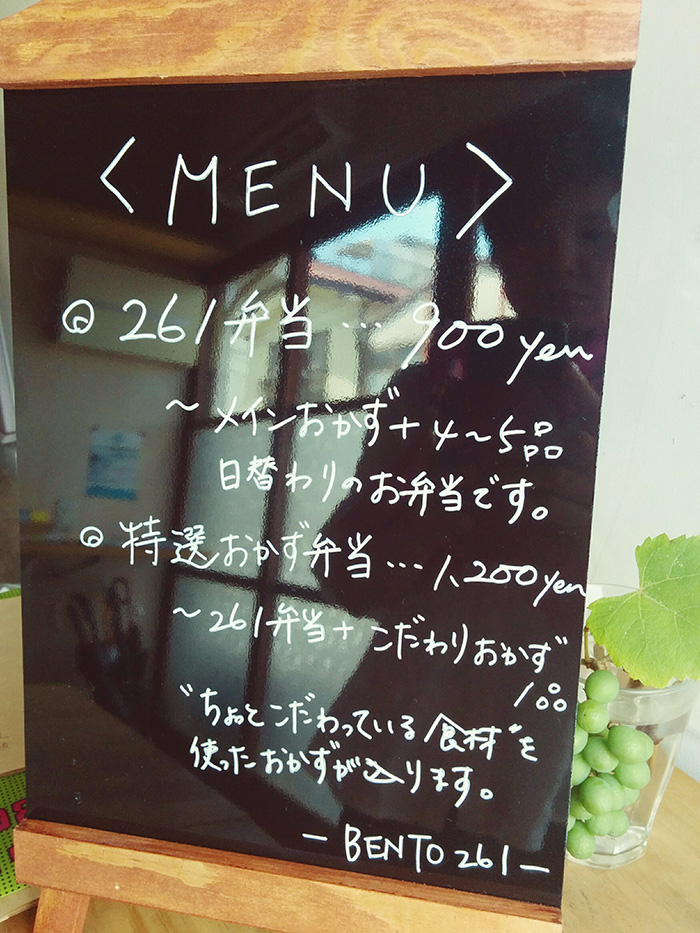 <MENU>
◎ 261弁当…900yen
~メインおかず+4~5品
日替わりのお弁当です。
◎ 特選おかず弁当…1,200yen
~261弁当+こだわりおかず
1品
"ちょっとこだわっている食材"を
使ったおかずが入ります。
-BENTO 261-